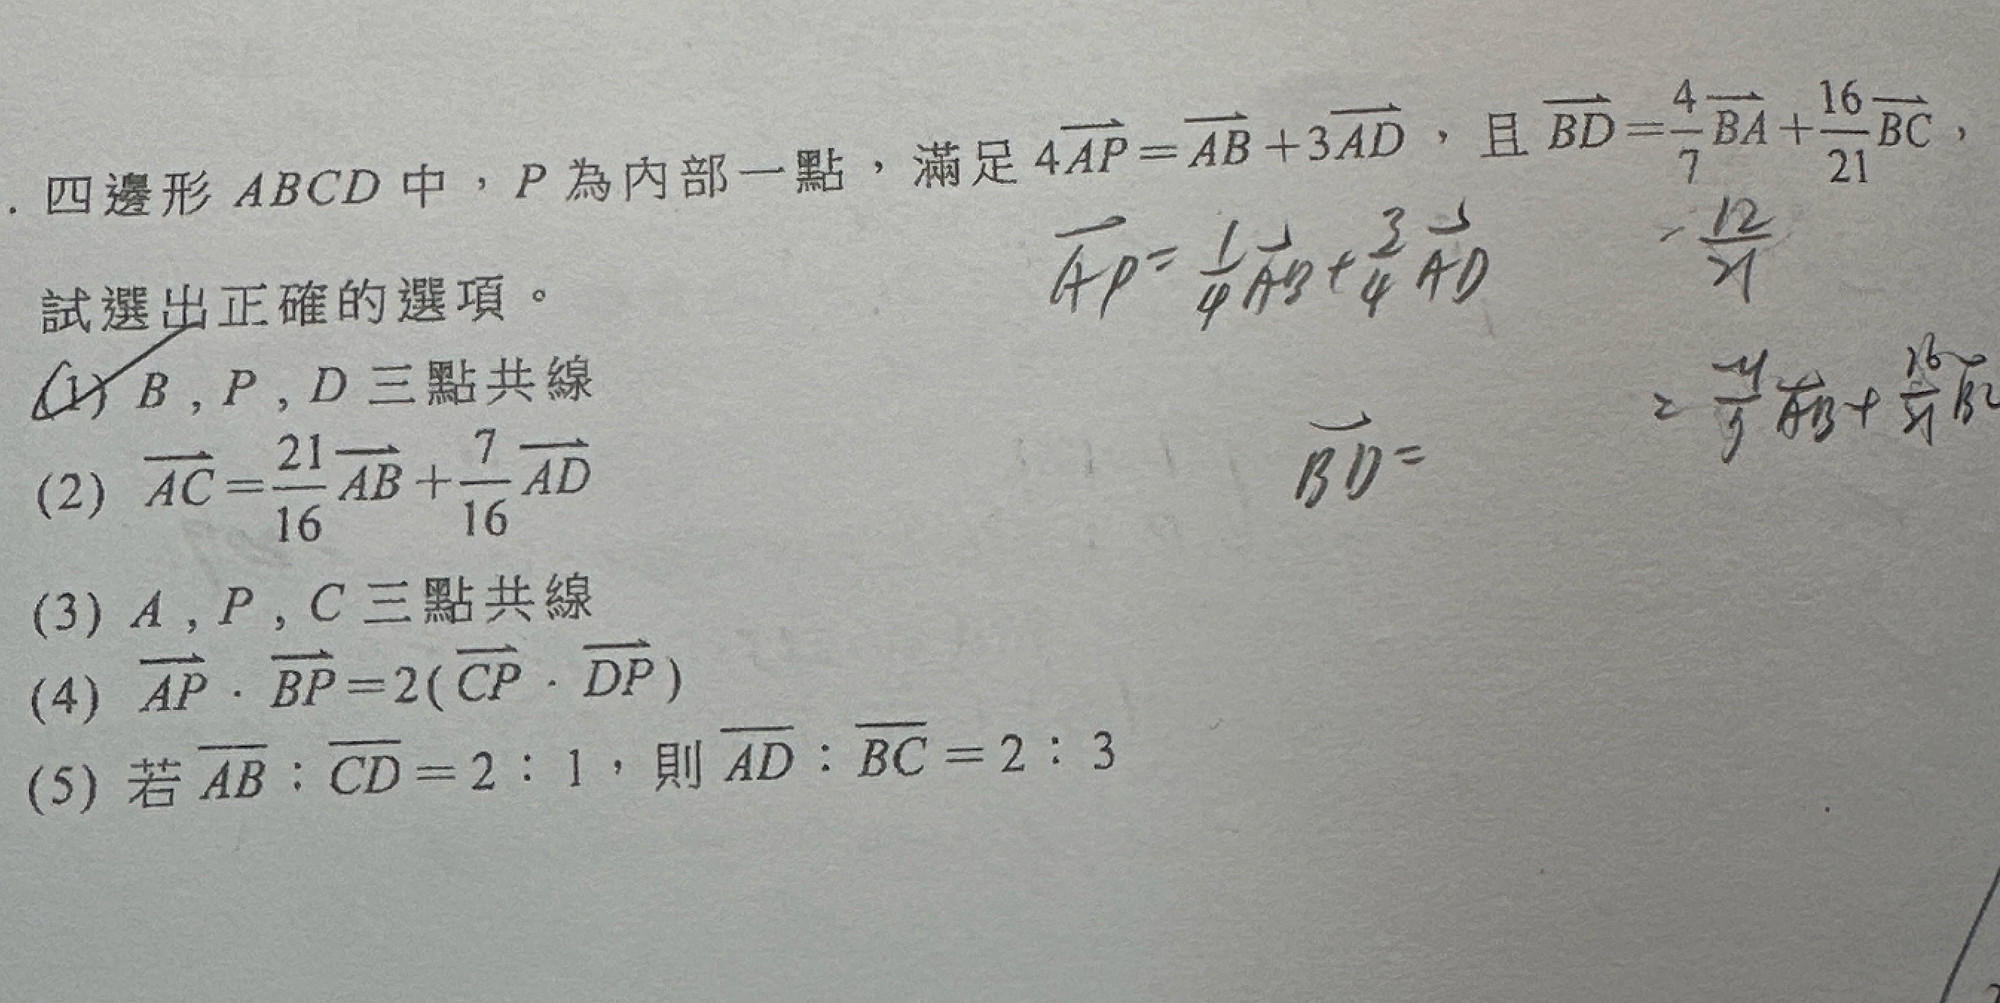 . 四邊形 ABCD 中，P 為內部一點，滿足 4AP=AB+3AD，且 BD=4/7BA+16/21BC，
AP=1/4AB+3/4AD
-12/21
試選出正確的選項。
(1) B , P , D 三點共線
=-4/7AB+16/21BC
(2) AC=21/16AB+7/16AD
BD=
(3) A , P , C 三點共線
(4) AP．BP=2(CP．DP)
(5) 若 AB：CD=2：1，則 AD：BC=2：3